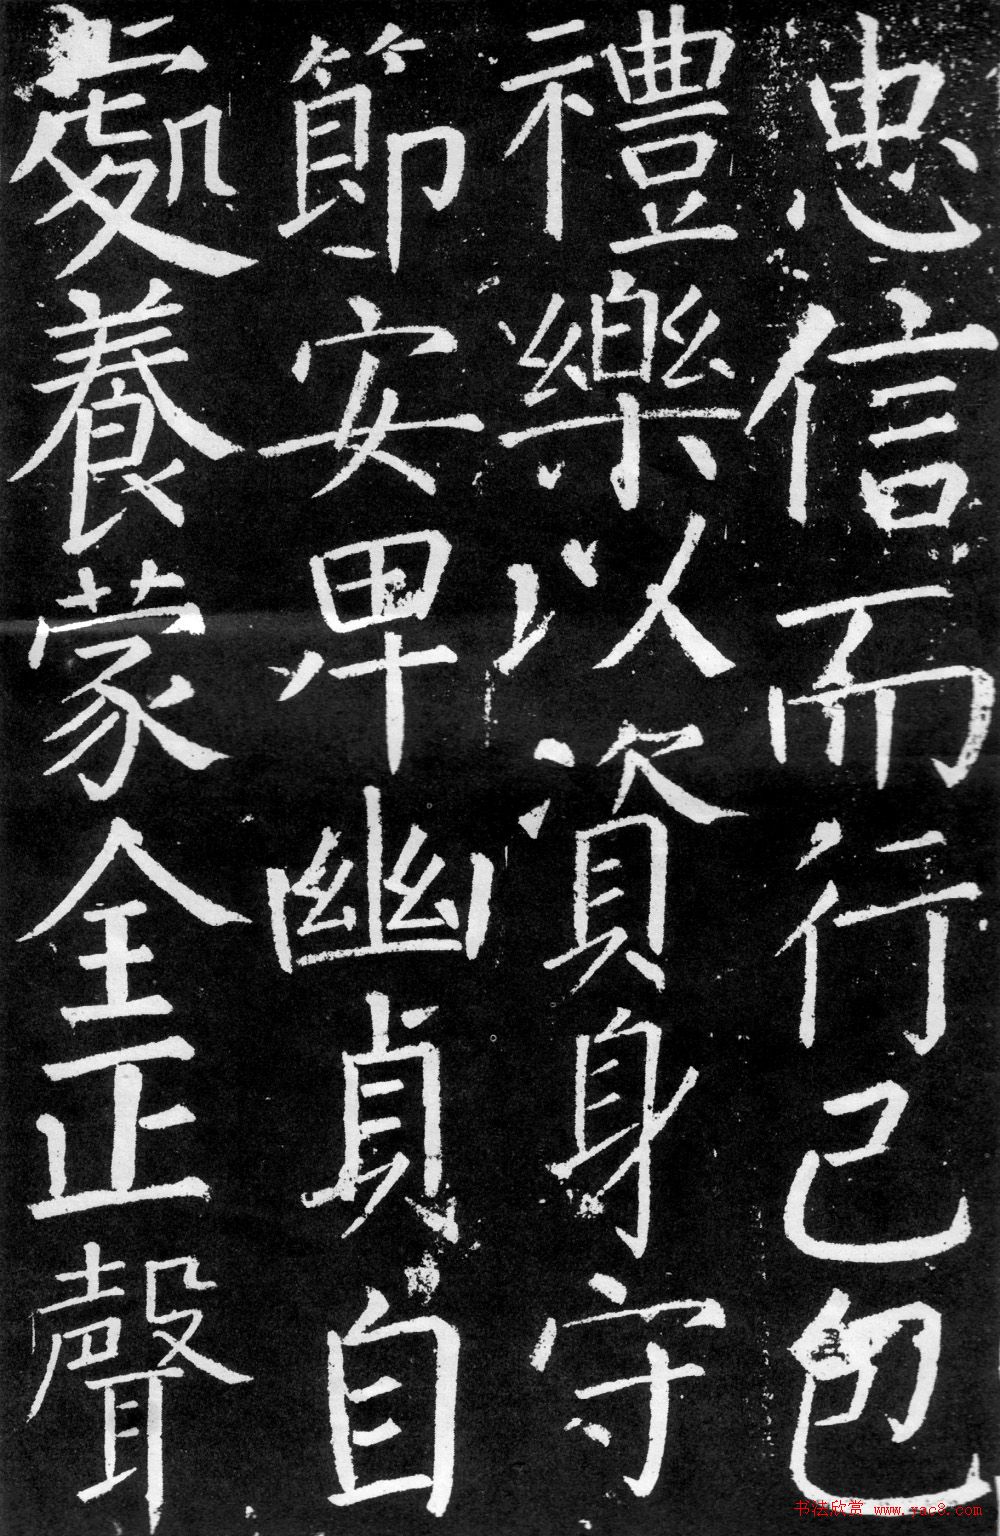 忠信而行己包
禮樂以資身守
節安卑幽貞自
處養蒙全正聲
书法欣赏 www.yac8.com